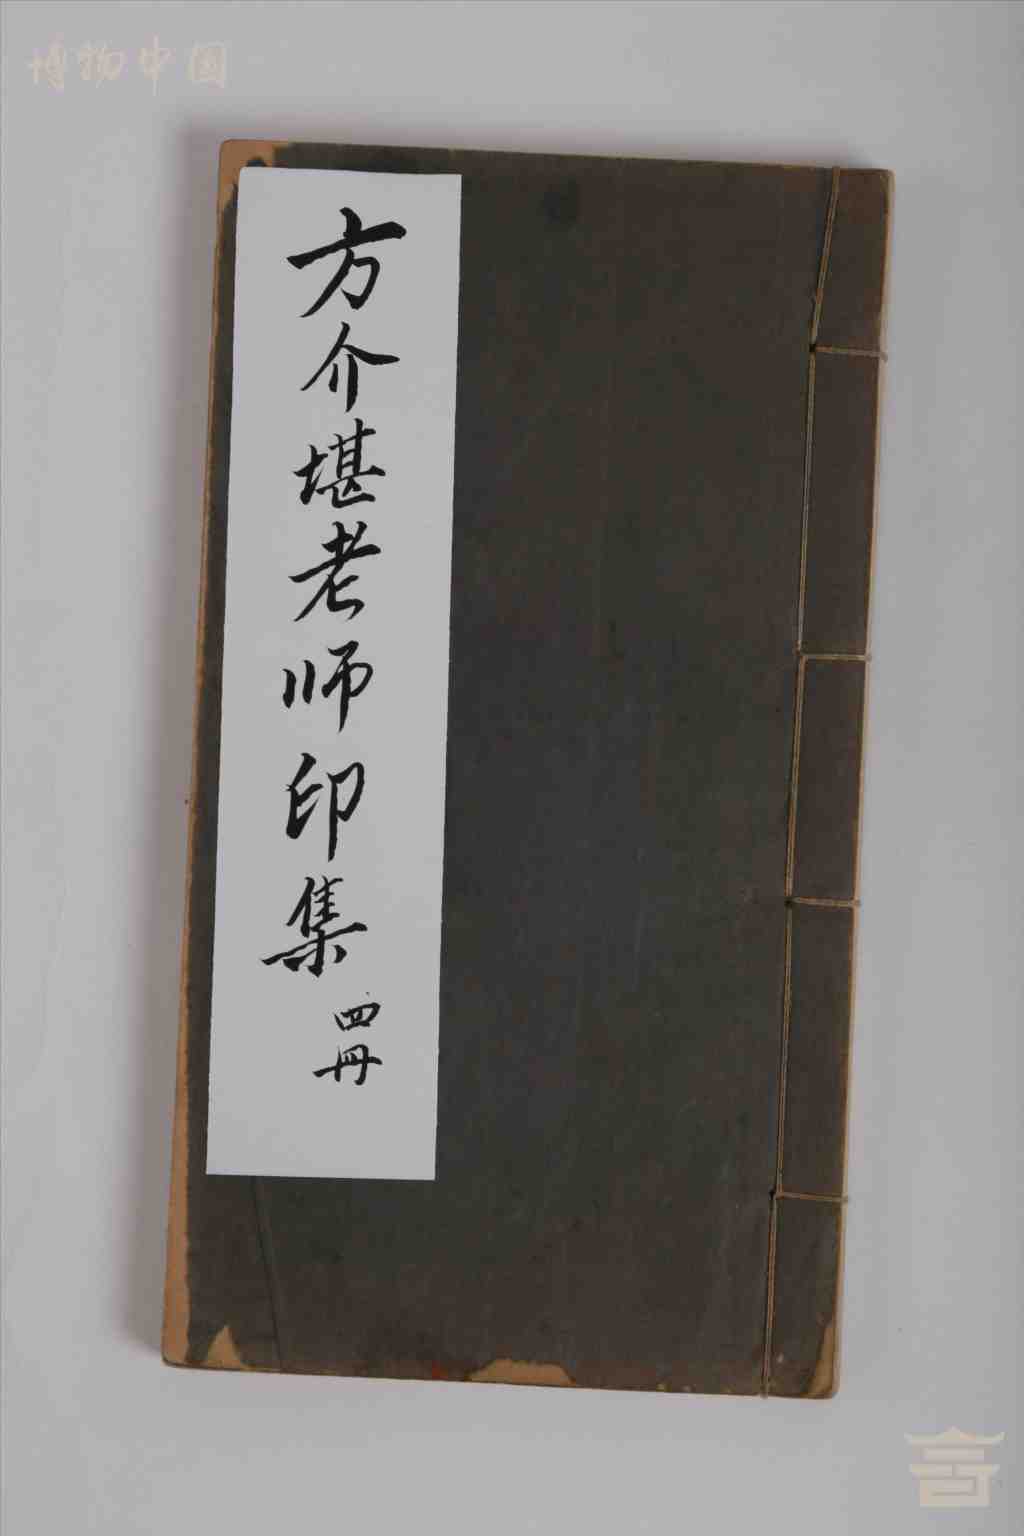 博物中国
方介堪老师印集
四册